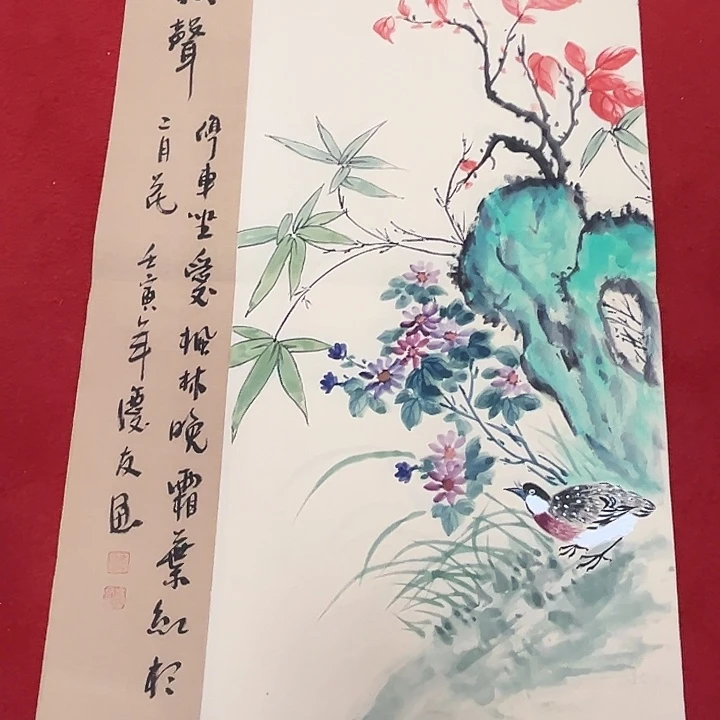 聲
停車坐愛楓林晚霜葉紅於
二月花
壬寅年慶友画